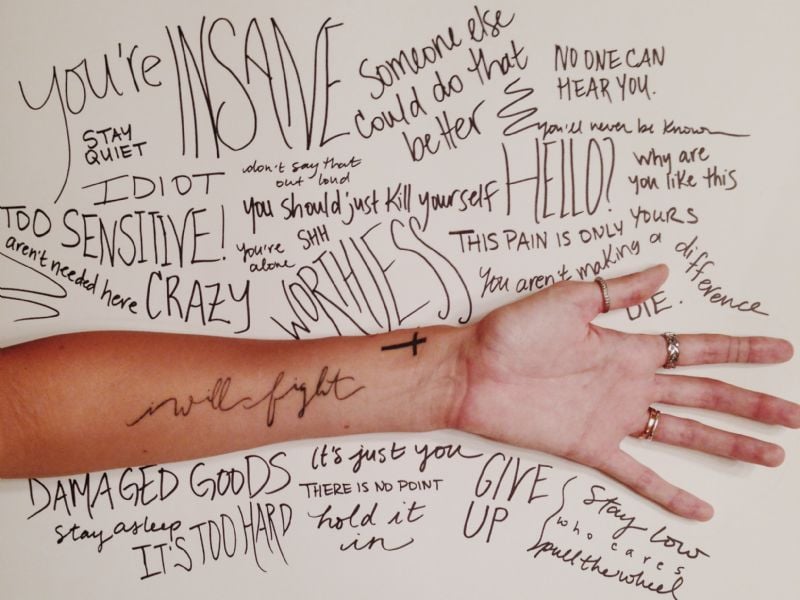 you're INSANE
someone else
could do that
better
NO ONE CAN
HEAR YOU.
STAY
QUIET
you'll never be known
IDIOT
don't say that
out loud
you should just kill yourself
HELLO?
why are
you like this
TOO SENSITIVE!
you're
alone
SHH
WORTHLESS
THIS PAIN IS ONLY YOURS
aren't needed here
CRAZY
You aren't making a difference
DIE.
i will fight
DAMAGED GOODS
it's just you
THERE IS NO POINT
GIVE
UP
stay asleep
IT'S TOO HARD
hold it
in
stay low
who cares
pull the wheel